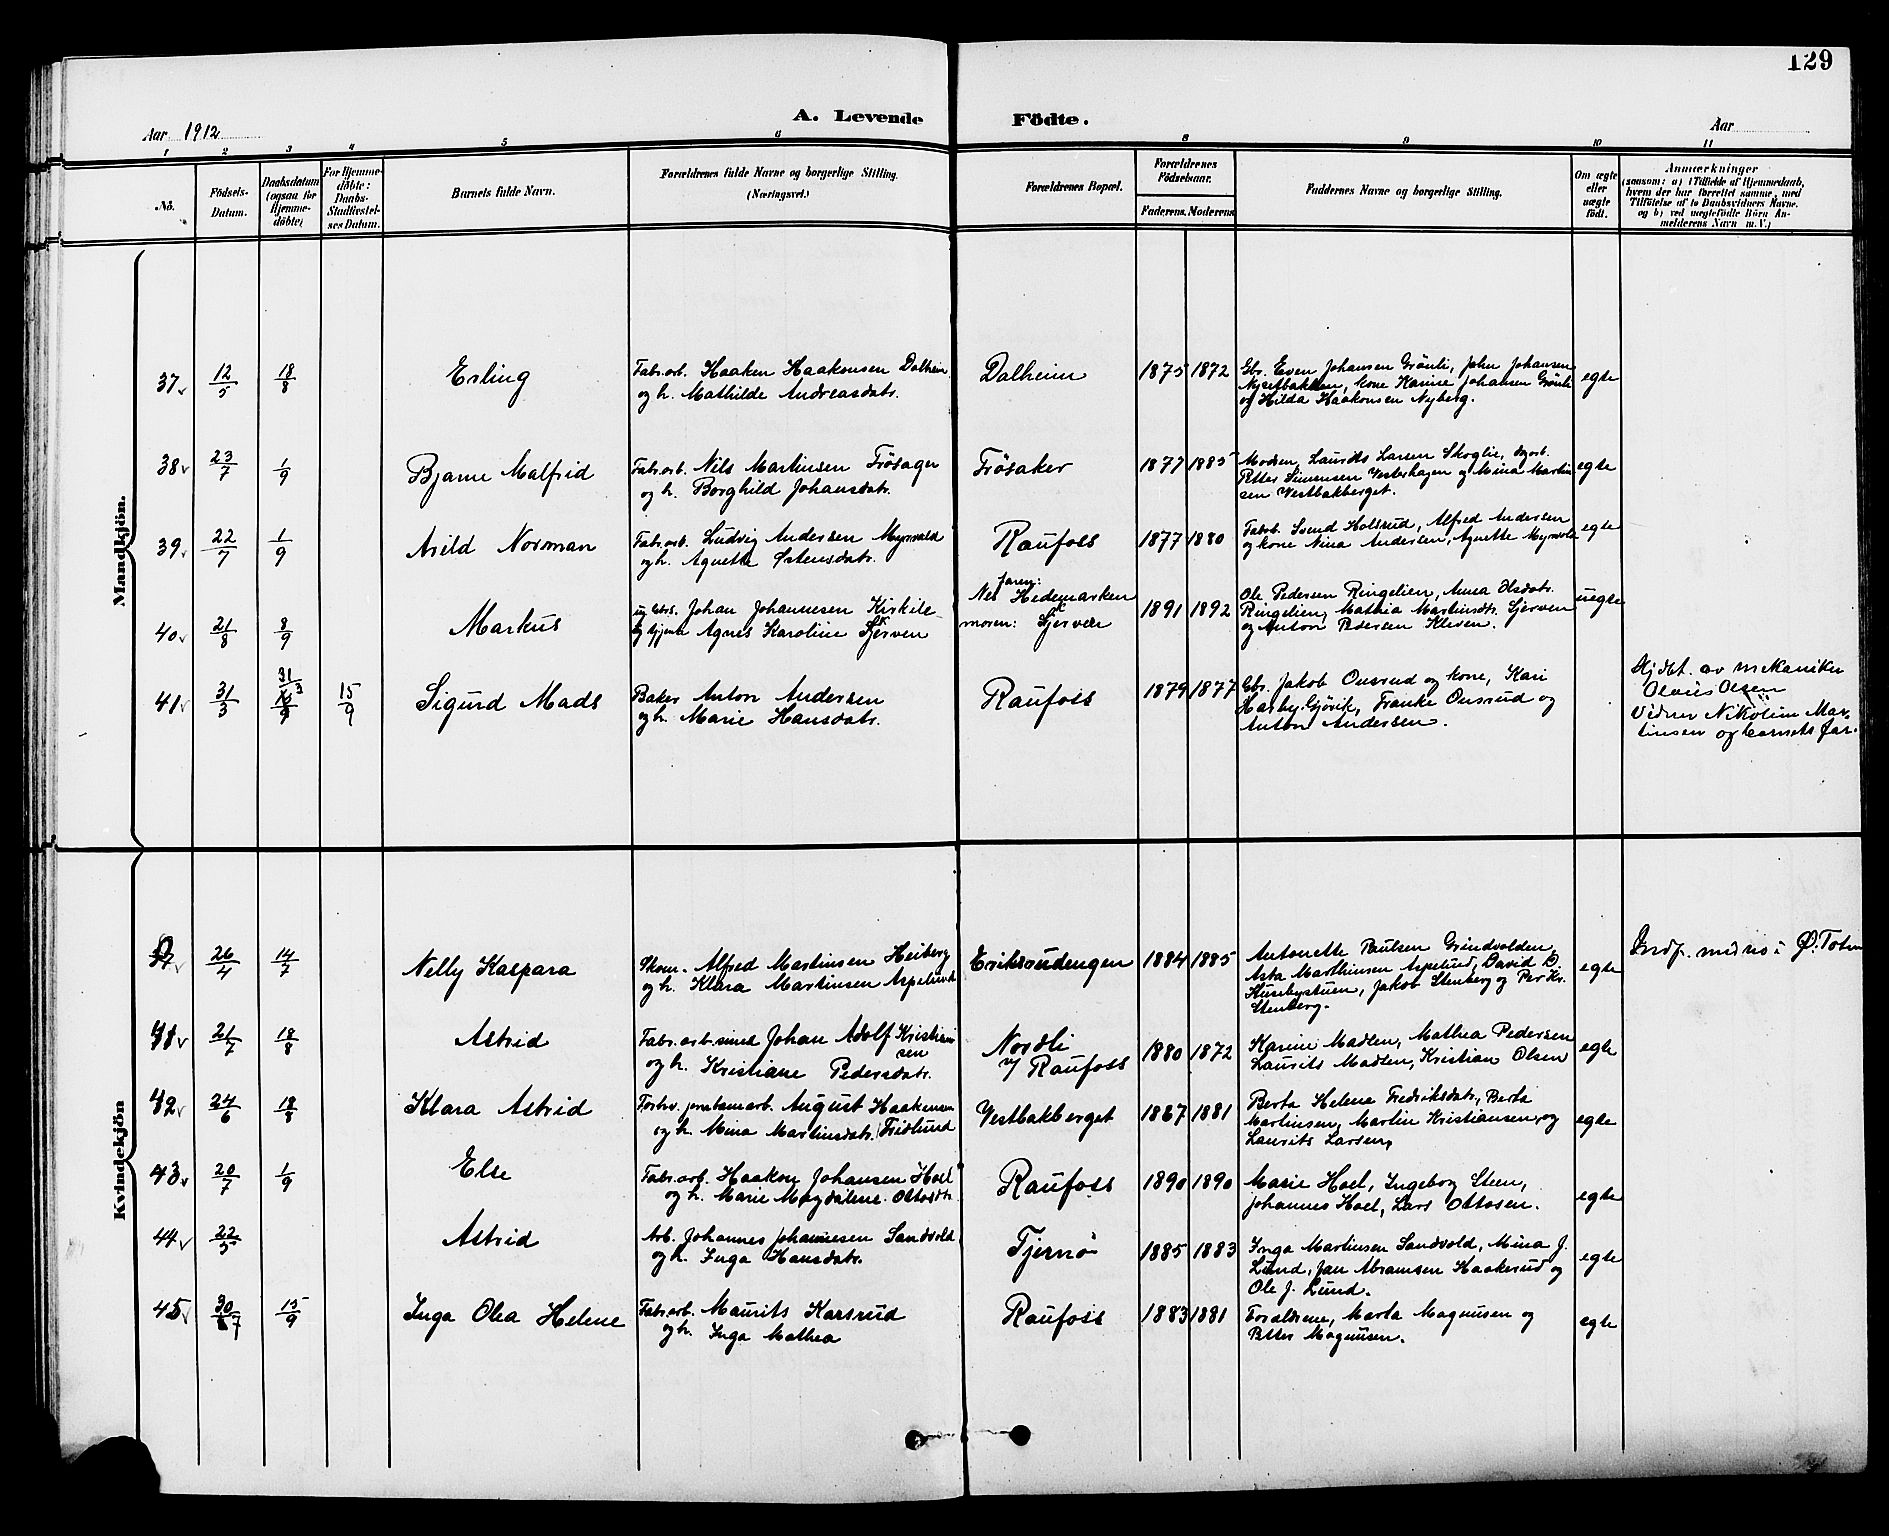 129
A. Levende Födte.
Aar 1912
Aar
1 2 3 4 5 6 8 9 10 11
No.
Födsels-Datum.
Daabsdatum (ogsaa for Hjemme-döbte)
For Hjemme-döbte: Daabs-Stadfæstel-ses Datum.
Barnets fulde Navn.
Forældrenes fulde Navne og borgerlige Stilling. (Næringsvei.)
Forældrenes Bopæl.
Forældrenes Födselsaar.
Faderens. Moderens
Faddernes Navne og borgerlige Stilling.
Om ægte eller uægte födt.
Anmærkninger
(saasom: a) i Tilfælde af Hjemmedaab,
hvem der har forrettet samme, med
Tilföielse af to Daabsvidners Navne.
og b) ved uægtefödte Börn An-
melderens Navn m.V.)
Mandkjön.
37 12/5 18/8 Erling
Fabr.arb. Haaken Haakensen Dalheim
og h. Mathilde Andreasdatr.
Dalheim 1875 1872
Gbr. Even Johansen Grönli, John Johansen
Nysetbakken, kone Karine Johansen Grönli
og Hilda Haakonsen Nyberg.
egte
38 23/7 1/9 Bjarne Malfrid
Fabr.arb. Nils Martinsen Frösager
og h. Borghild Johansdatr.
Frösaker 1877 1885
Modren, Laurits Larsen Skoglie,
Petter Simensen Vesterhagen og Mina Martin
sen Vestbakberget.
egte
39 22/7 1/9 Arild Norman
Fabr.arb. Ludvig Andersen Myrvold
og h. Agnethe Østensdatr.
Raufoss 1877 1880
Fabrb. Svend Holsrud, Alfred Andersen
og kone Nina Andersen, Agnette Myrvold
egte
40 21/8 8/9 Markus
ug. Gbrs. Johan Johannesen Kirkile
og pike Agnes Karoline Skjerven
faren: Nes Hedemarken
moren: Skjerven 1891 1892
Ole Pedersen Ringelien, Anna Olsdatr.
Ringelien, Mathia Martinsdtr. Sjerven
og Anton Pedersen Kleven.
uegte
41 31/3 31/3 15/9 Sigurd Mads
Baker Anton Andersen
og h. Marie Hansdatr.
Raufoss 1879 1877
Gbr. Jakob Onsrud og kone, Kari
Hasby Gjövik, Franke Onsrud og
Anton Andersen.
Hjdbt. av mekaniker
Olaus Olsen
Vidner Nikoline Mar-
tinsen og barnets far.
Kvindekjön
26/4 14/7 Nelly Kaspara
Skom. Alfred Martinsen Heiberg
og h. Klara Martinsen Aspelund
Eriksrudengen 1884 1885
Antonette Paulsen Grindvolden
Asta Marthinsen Aspelund, David D.
Husebystuen, Jakob Stenberg og Per Kr.
Stenberg.
egte
Indf. med no i Ø. Toten
41 21/7 18/8 Astrid
Fabr.arb. smed Johan Adolf Kristian
sen
og h. Kristiane Pedersdatr.
Nordli
v/ Raufoss 1880 1872
Karine Madlen, Mathea Pedersen
Laurits Madsen, Kristian Olsen
egte
42 24/6 18/8 Klara Astrid
Forhv. jernbanearb. August Haakensen
og h. Mina Martinsdatr. (Fridlund
Vestbakberget 1867 1881
Berta Helena Fredriksdatr, Berta
Martinsen, Martin Kristiansen og
Laurits Larsen,
egte
43 20/7 1/9 Else
Fabr.arb. Haakon Johansen Hoel
og h. Marie Magdalene Ottosdtr.
Raufoss 1890 1890
Marie Hoel, Ingeborg Steen,
Johannes Hoel, Lars Ottosen.
egte
44 22/5 Astrid
Arb. Johannes Johannesen Sandvold
og h. Inga Hansdatr.
Tjernö 1885 1883
Inga Martinsen Sandvold, Mina J.
Lund, Jan Abramsen Haakerud og
Ole J. Lund.
egte
45 30/7 15/9 Inga Olea Helene
Fabr.arb. Maurits Karsrud
og h. Inga Mathea
Raufoss 1883 1881
Foraldrene, Marta Magnusen og
Petter Magnusen.
egte